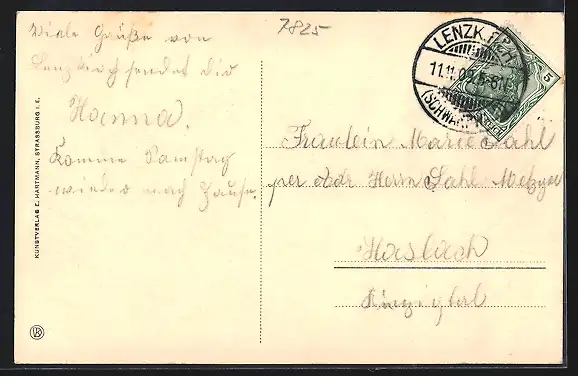 7825
Viele Grüße von
Lenzkirch sendet Dir
Hanna.
Komme Samstag
wieder nach Hause.
KUNSTVERLAG E. HARTMANN, STRASSBURG I. E.
LENZKIRCH
11.11.05. 5-6N.
(SCHWARZW.)
5
Fräulein Marie Sahl
per Adr Herrn Sahl Metzger
Haslach
Kinzigtal